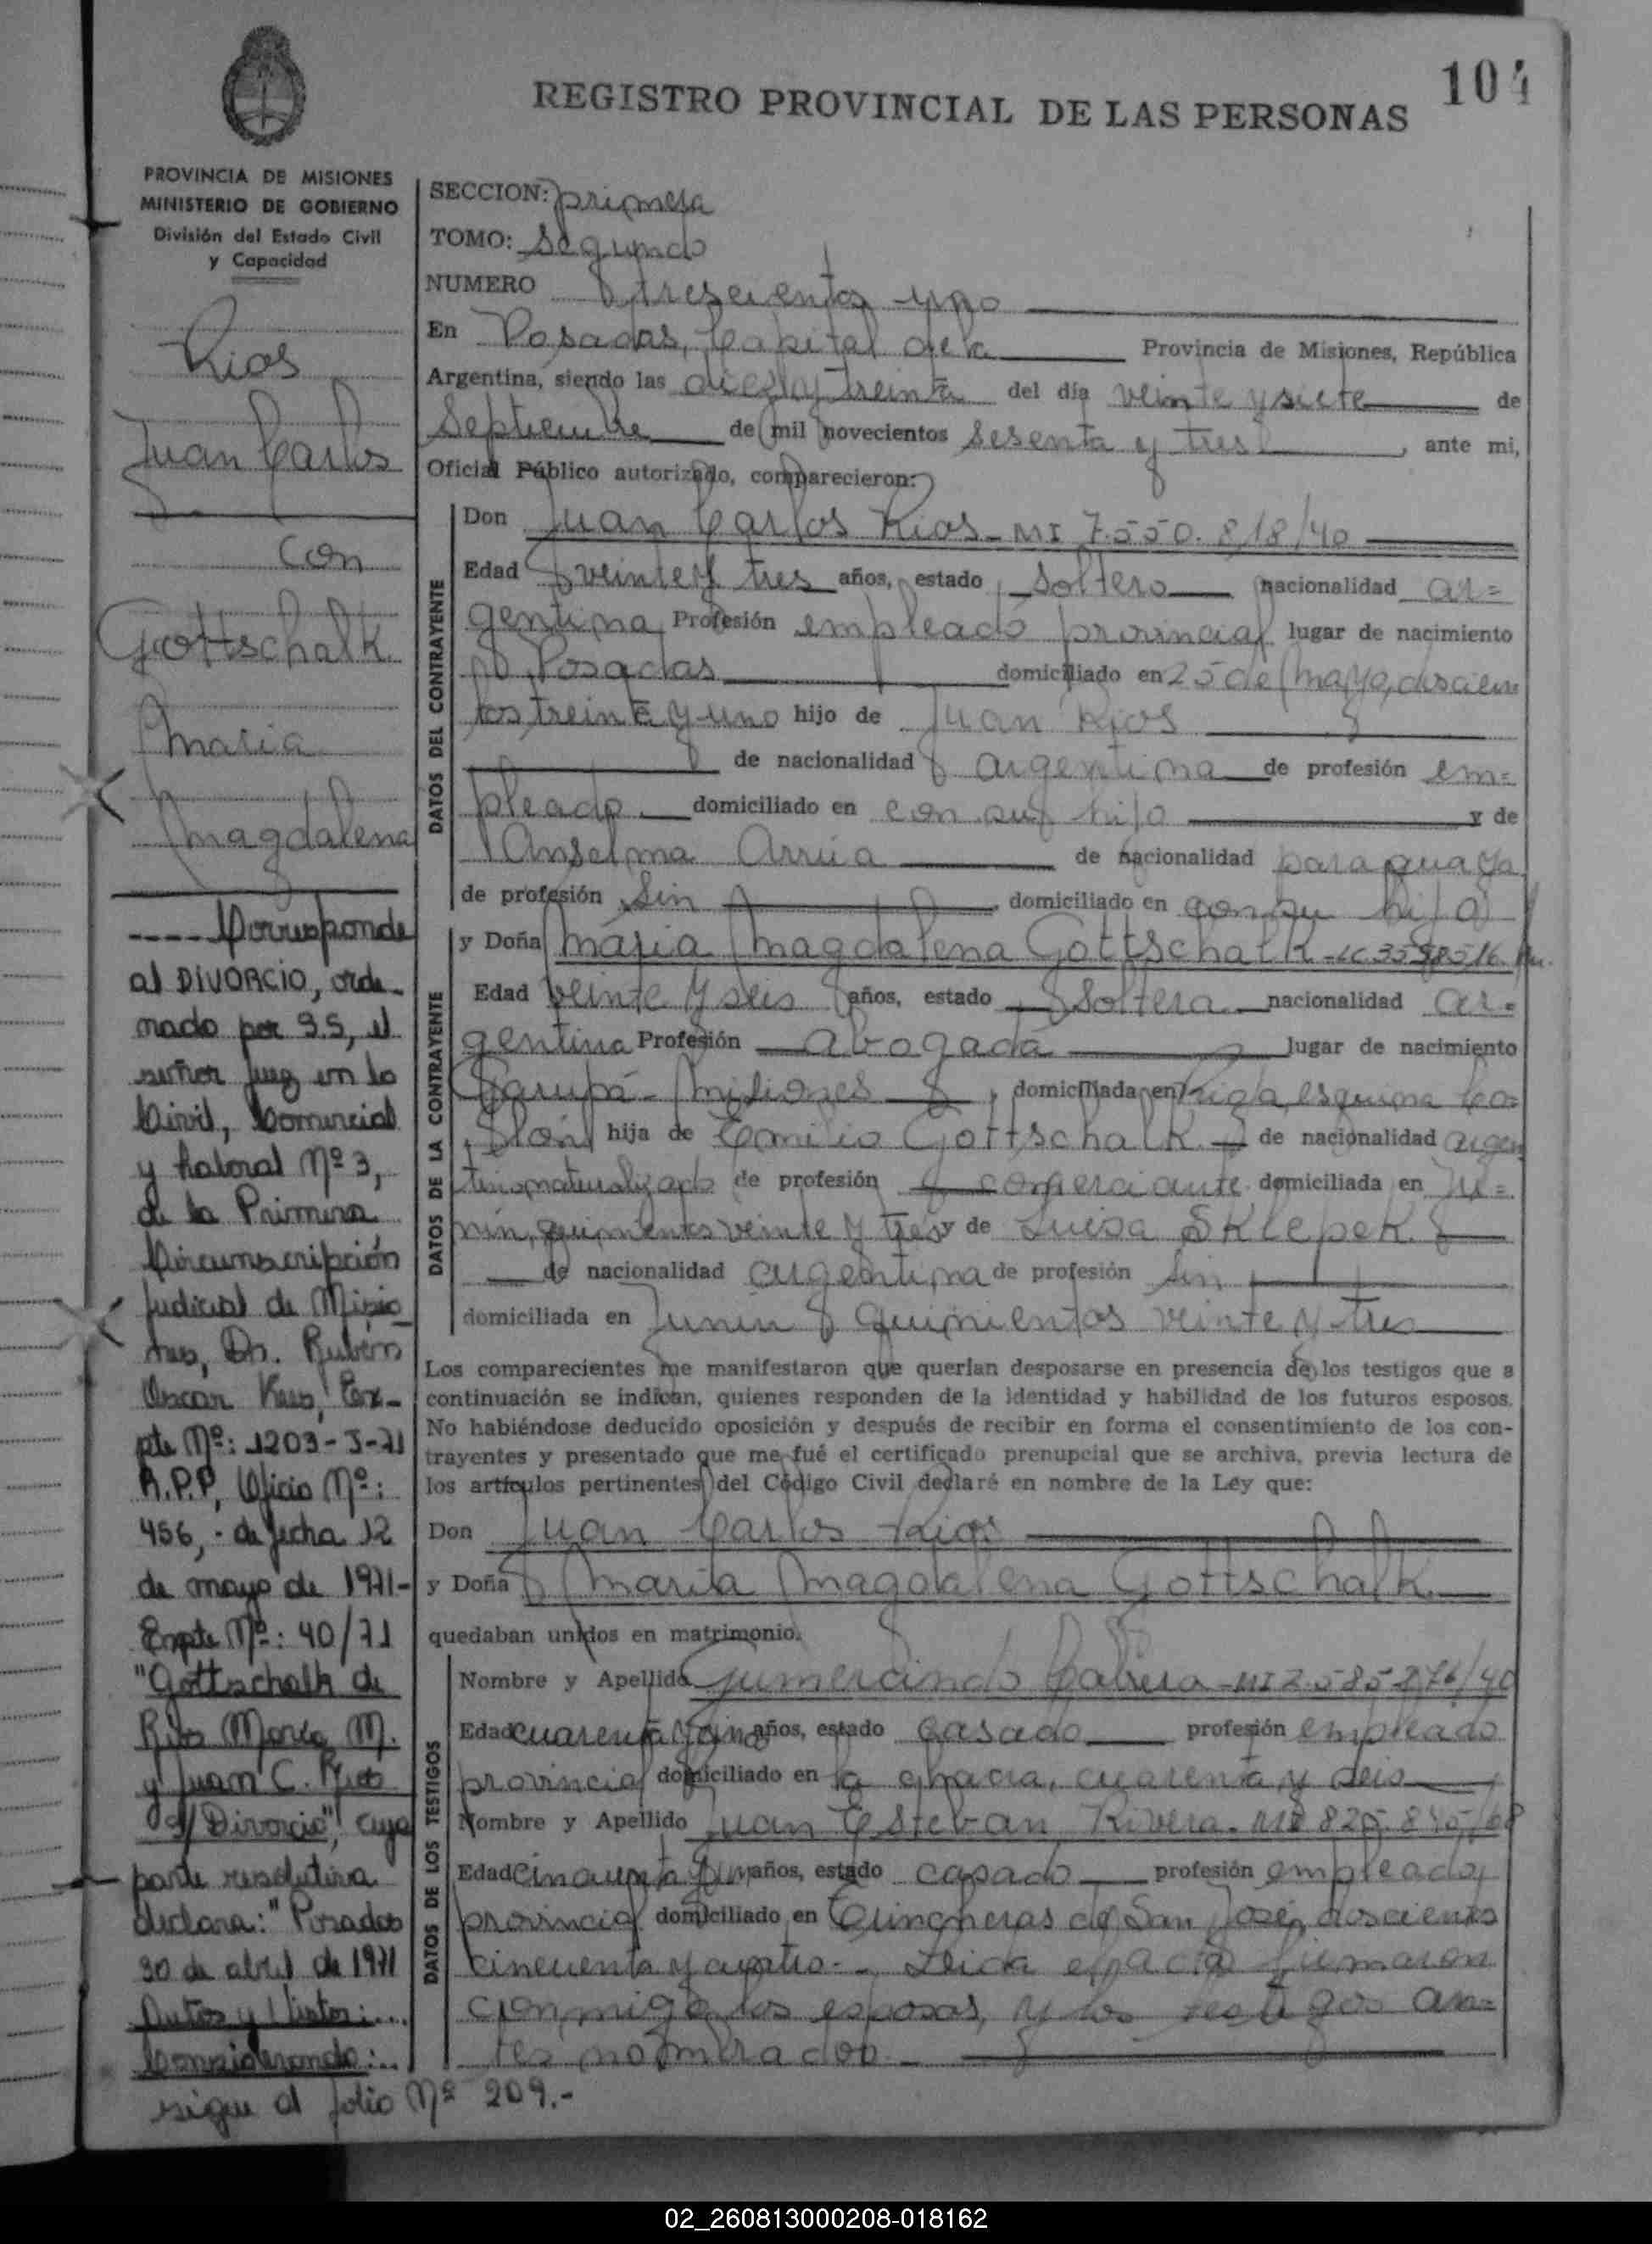 104
REGISTRO PROVINCIAL DE LAS PERSONAS
PROVINCIA DE MISIONES
MINISTERIO DE GOBIERNO
División del Estado Civil
y Capacidad
Rios
Juan Carlos
con
Gottschalk
Maria
Magdalena
---- Corresponde
al DIVORCIO, orde-
nado por S.S, el
señor Juez en lo
Civil, Comercial
y Laboral Nº 3,
de la Primera
Circunscripción
Judicial de Misio-
nes, Dr. Rubén
Oscar Ex-
pte Nº: 1203-J-71
R.P.P, Oficio Nº:
456,- de fecha 12
de mayo de 1971-
Expte Nº: 40/71
"Gottschalk de
Rios María M.
y Juan C. Rios
s/ Divorcio", cuya
parte resolutiva
declara: "Posadas
30 de abril de 1971
Autos y Vistos:...
Considerando:...
sigue al folio Nº 209.-
SECCION: primera
TOMO: Segundo
NUMERO trescientos uno
En Posadas, Capital de la Provincia de Misiones, República
Argentina, siendo las diez y treinta del día veinte y siete de
Septiembre de mil novecientos sesenta y tres, ante mi,
Oficial Público autorizado, comparecieron:
DATOS DEL CONTRAYENTE
Don Juan Carlos Rios - MI 7.550.818/40
Edad veinte y tres años, estado soltero nacionalidad ar=
gentina Profesión empleado provincial lugar de nacimiento
Posadas domiciliado en 25 de Mayo, doscien
tos treinta y uno hijo de Juan Rios
de nacionalidad argentina de profesión em=
pleado domiciliado en con su hijo y de
Anselma Arrúa de nacionalidad paraguaya
de profesión sin domiciliado en con su hijo
DATOS DE LA CONTRAYENTE
y Doña Maria Magdalena Gottschalk - LC
Edad veinte y seis años, estado soltera nacionalidad ar=
gentina Profesión abogada lugar de nacimiento
Garupá - Misiones, domiciliada en esquina Co=
lón hija de Emilio Gottschalk de nacionalidad argen
tino naturalizado de profesión comerciante domiciliada en Ju=
nín, quinientos veinte y tres y de Luisa Sklepek
de nacionalidad argentina de profesión sin
domiciliada en Junin quinientos veinte y tres
Los comparecientes me manifestaron que querían desposarse en presencia de los testigos que a
continuación se indican, quienes responden de la identidad y habilidad de los futuros esposos.
No habiéndose deducido oposición y después de recibir en forma el consentimiento de los con-
trayentes y presentado que me fué el certificado prenupcial que se archiva, previa lectura de
los artículos pertinentes del Código Civil declaré en nombre de la Ley que:
Don Juan Carlos Rios
y Doña Maria Magdalena Gottschalk
quedaban unidos en matrimonio.
DATOS DE LOS TESTIGOS
Nombre y Apellido Gumercindo Cabrera - MI
Edad cuarenta y años, estado casado profesión empleado
provincial domiciliado en la chacra, cuarenta y seis
Nombre y Apellido Juan Esteban Rivera - MI
Edad cincuenta y un años, estado casado profesión empleado
provincial domiciliado en Trincheras de San José, doscientos
cincuenta y cuatro.- Leida el acta firmaron
conmigo los esposos, y los testigos an=
tes nombrados.-
02_260813000208-018162